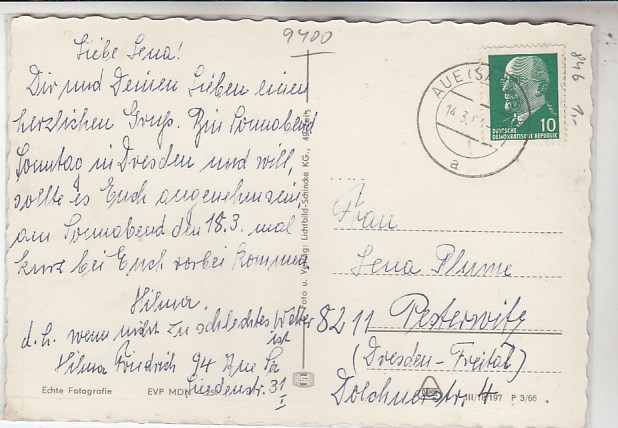 9400
Liebe Lena!
Dir und Deinen Lieben einen
herzlichen Gruß. Bin Sonnabend
Sonntag in Dresden und will,
sollte es Euch angenehm sein
am Sonnabend den 18.3. mal
kurz bei Euch vorbei kommen.
Hilma.
d. h. wenn nicht zu schlechtes Wetter
ist
Hilma Friedrich 94 Aue Sa
Lindenstr. 31
I
Echte Fotografie
EVP MDN
Foto u. Verlag: Lichtbild-Schincke KG.,
AUE (SA
14.3.
a
DEUTSCHE
DEMOKRATISCHE REPUBLIK
10
846
1,-
Frau
Lena Plume
8211 Pesterwitz
(Dresden-Freital)
Dölchnerstr. 4
III/18/197 P 3/66